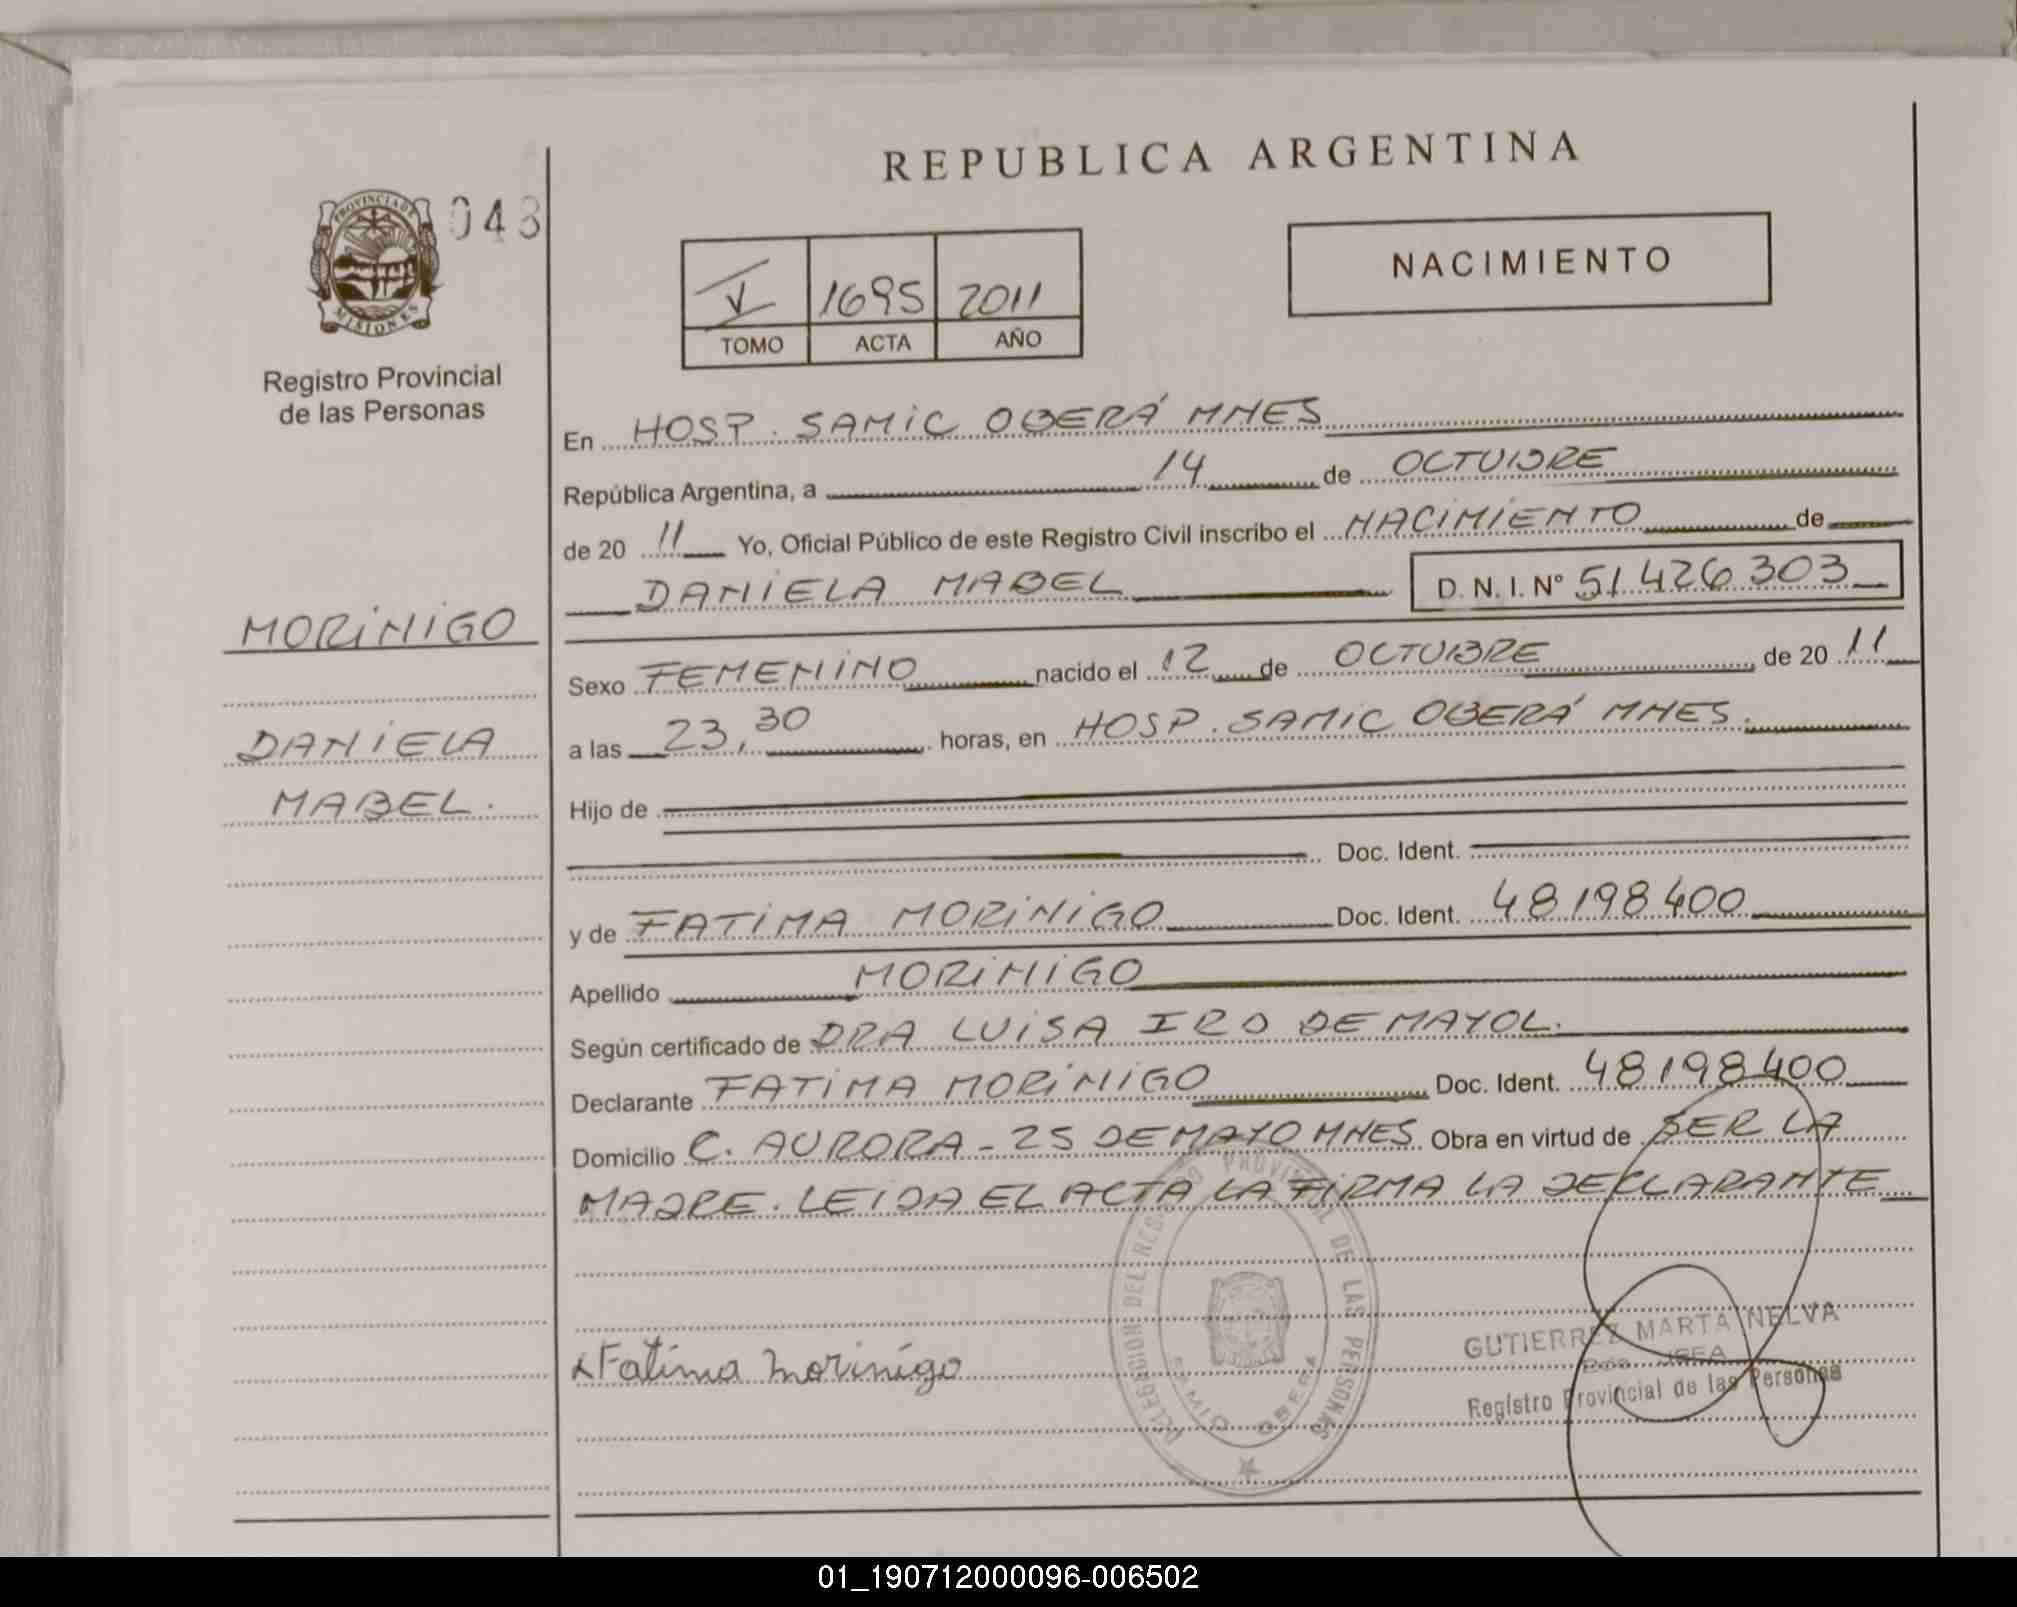 REPUBLICA ARGENTINA
PROVINCIA DE
MISIONES
043
Registro Provincial
de las Personas
V 1695 2011
TOMO ACTA AÑO
NACIMIENTO
En HOSP. SAMIC OBERÁ MNES
República Argentina, a 14 de OCTUBRE
de 20 11 Yo, Oficial Público de este Registro Civil inscribo el NACIMIENTO de
DANIELA MABEL D. N. I. Nº 51.426.303
MORINIGO
DANIELA
MABEL.
Sexo FEMENINO nacido el 12 de OCTUBRE de 20 11
a las 23,30 horas, en HOSP. SAMIC OBERÁ MNES.
Hijo de
Doc. Ident.
y de FATIMA MORINIGO Doc. Ident. 48198400
Apellido MORINIGO
Según certificado de DRA LUISA IRO DE MAYOL.
Declarante FATIMA MORINIGO Doc. Ident. 48198400
Domicilio C. AURORA - 25 DE MAYO MNES Obra en virtud de SER LA
MADRE. LEIDA EL ACTA LA FIRMA LA DECLARANTE
Fatima Morinigo
DELEGACION DEL REGISTRO PROVINCIAL DE LAS PERSONAS
SAMIC OBERA
GUTIERREZ MARTA NELVA
Registro Provincial de las Personas
01_190712000096-006502